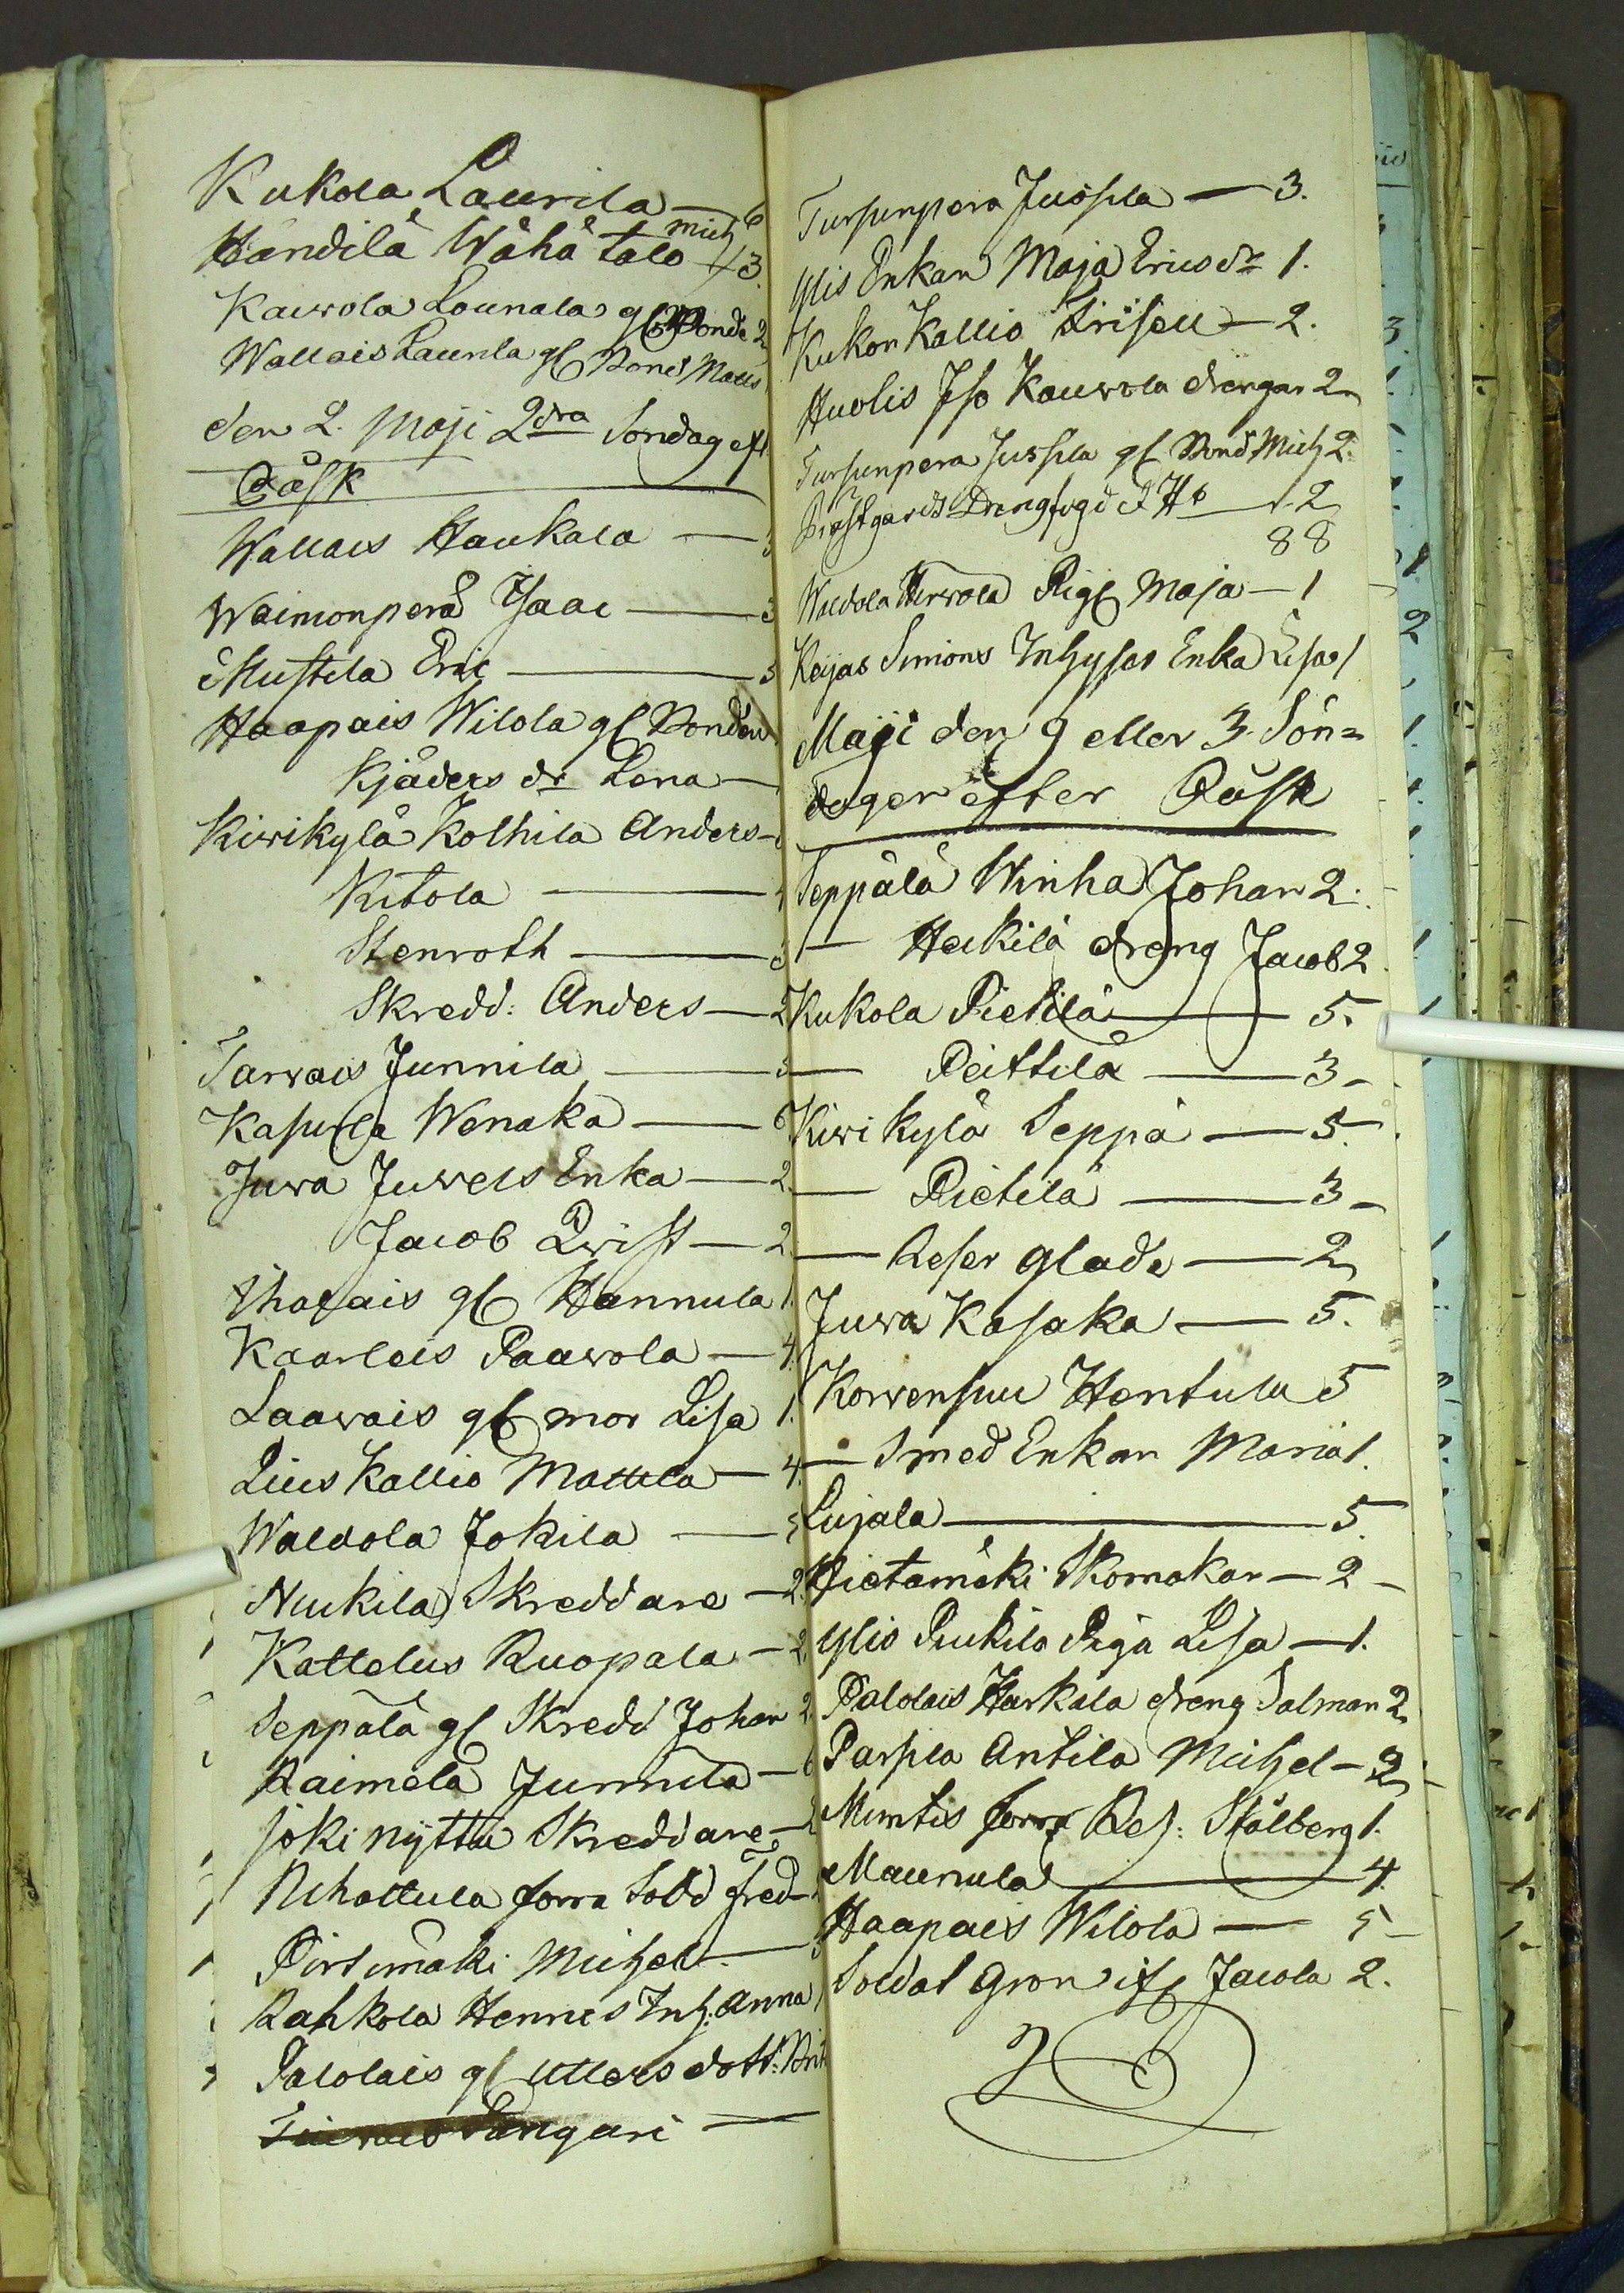 Kukola Laurila — 6
Händilä Wähä talo Mich 3.
Kaurola Lounala gl Bonde 2
Wallais Laurila gl Bond Matts
den 2. Maji 2dra Söndag eft
Påsk
Wallais Haukala — 3
Waimonperä Isaac — 3
Mustila Eric — 3
Haapais Wilola gl Bonden
Kjäders dr Lena —
Kiwikylä Kolhila Anders —
Kitola —
Stenroth — 3
Skredd: Anders — 2
Tarvais Junnila — 3
Kasurla Wenaka — 6
Juva Juvels Enka — 2.
Jacob Qvist — 2
gl Hannula 1.
Kaarleis Paavola — 4.
Laavais gl mor Lisa 1.
Lius Kallio Mattila — 4.
Waldola Jokila — 5
Nuikila Skreddare — 2.
Kattelus Ruopala — 2.
Seppälä gl Skredd Johan 2.
Raimela Junnila — 6
Joki nyttu Skreddare — 2
Nihattula forra Sold fred —
Pirtimäki Michel — 3
Rahkola Hennes Inh: Anna 1
Palolais gl Ullers dott: Brit
Pungari —
Tursunpera Jussila — 3.
Ylis Enkan Maja Ericsdr 1.
Kukon Kallio Frisell — 2.
Huolis Iso Kauvola drengar 2
Tursunpera Jussila gl Bond Mich 2.
Prästgards Drengfogd 2
88
Waldola Hirvola Pig Maja — 1
Keijas Simons Inhyses Enka Lisa 1
Maji den 9 eller 3 Sön=
dagen efter Påsk
Seppälä Winha Johan 2.
— Heikilä dreng Jacob 2
Kukola Pietilä — 5.
— Peittilä — 3 —
Kiwi kylä Seppä — 5.
— Pietilä — 3 —
— Reser glade — 2
Juwa Kasaka — 5.
Korvensuu Hentula 5
— Smed Enkan Maria 1.
Lujala — 5.
Hietamäki Skomakar — 2 —
Ylis Piukilo Piga Lisa — 1.
Palolais Harkala dreng Salmon 2
Parsila Antila Michel — 2
Mimtis forra Res: Stålberg 1.
Maunula — 4.
Haapais Wilola — 5 —
Soldat Gron if Jacola 2.